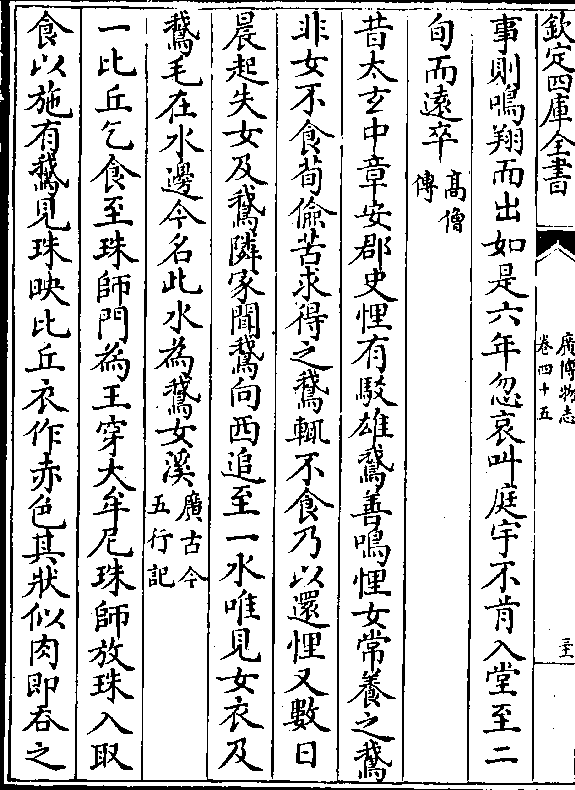 欽定四庫全書
廣博物志
卷四十五
三十
事則鳴翔而出如是六年忽哀叫庭宇不肯入堂至二
旬而遠卒高僧
傳
昔太玄中章安郡史悝有駮雄鵞善鳴悝女常養之鵞
非女不食荀儉苦求得之鵞輒不食乃以還悝又數日
晨起失女及鵞隣家聞鵞向西追至一水唯見女衣及
鵞毛在水邊今名此水為鵞女溪廣古今
五行記
一比丘乞食至珠師門為王穿大牟尼珠師放珠入取
食以施有鵞見珠映比丘衣作赤色其狀似肉即吞之